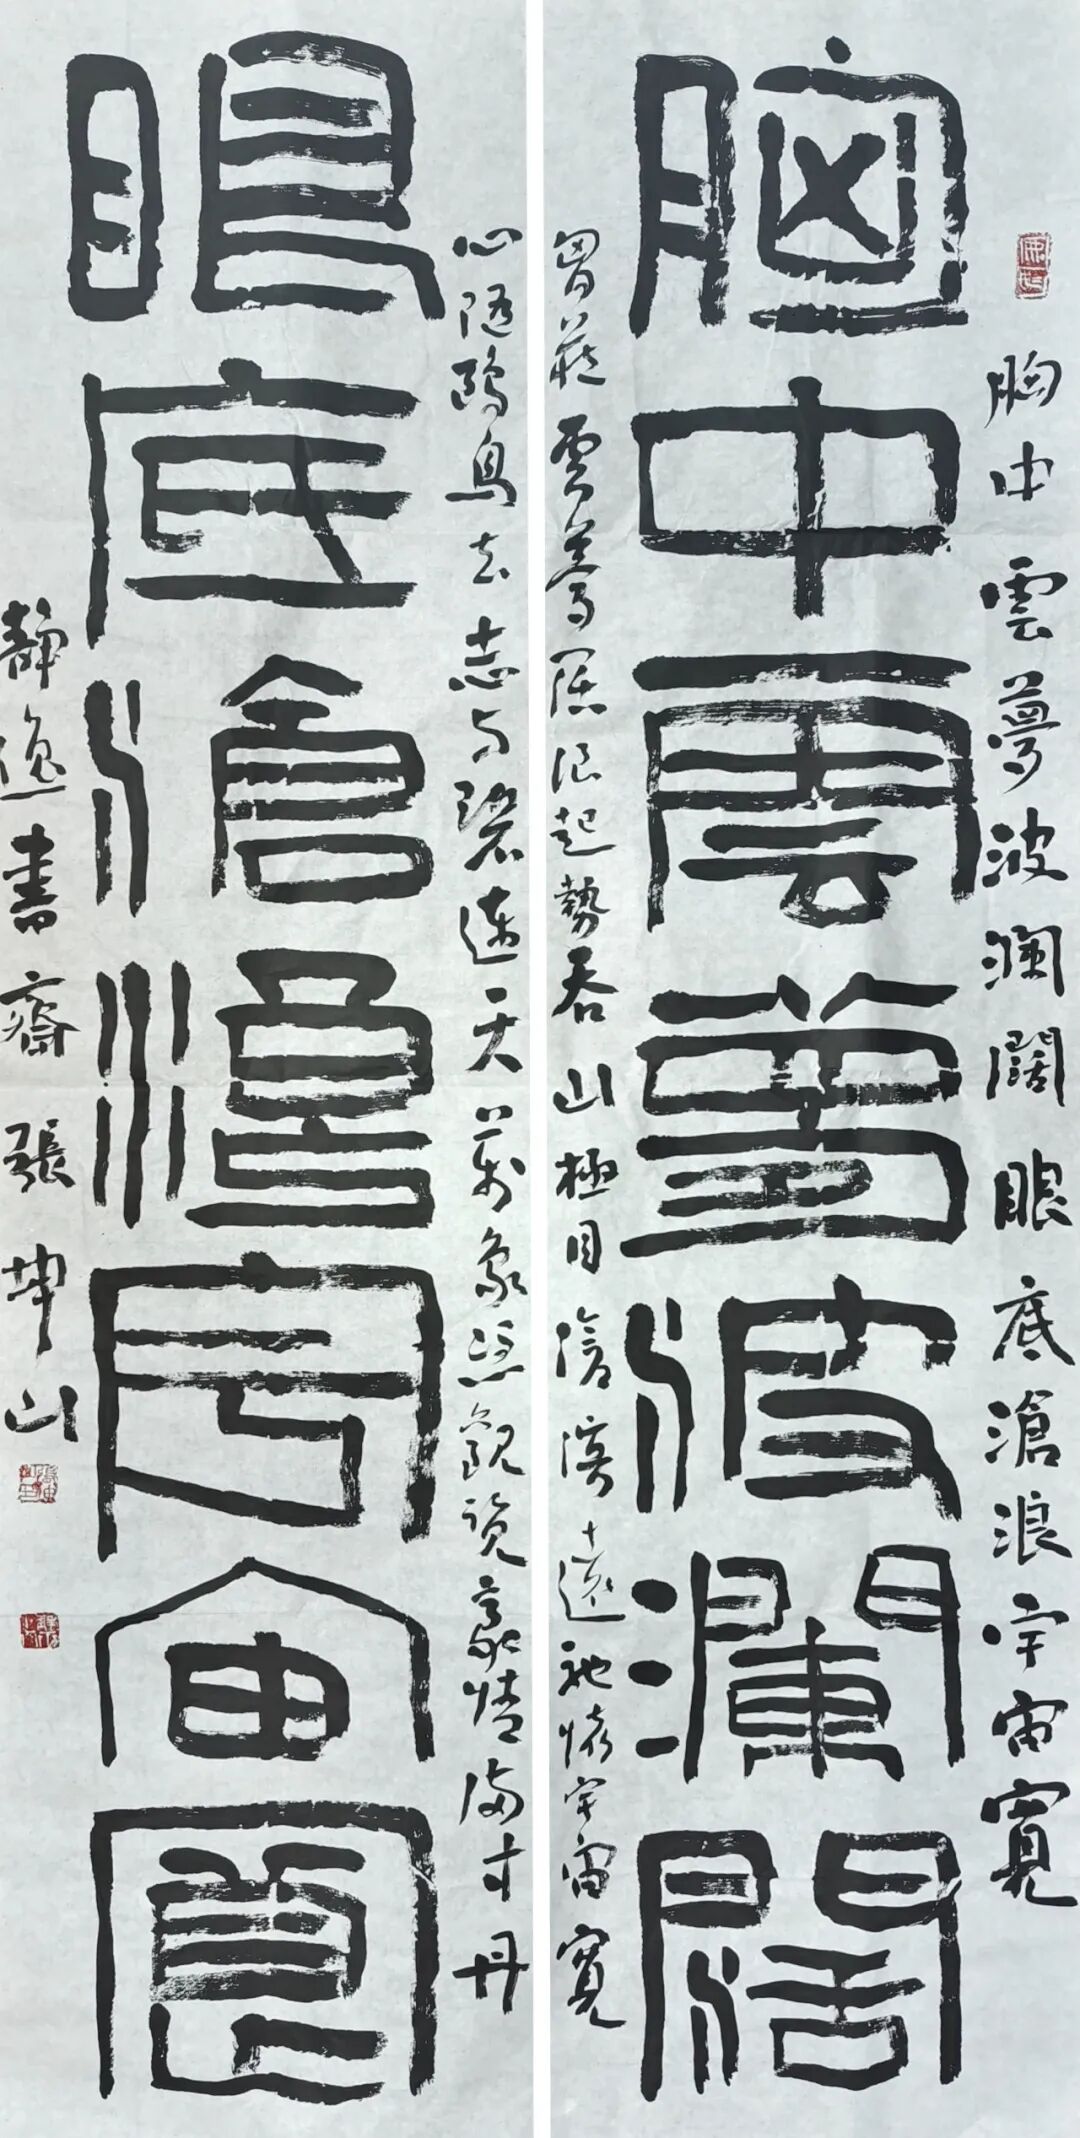 胸中雲夢波瀾闊眼底滄浪宇宙寬
胸中雲夢波瀾闊
胷藏雲夢浪起勢吞山極目滄溟遠馳懷宇宙寬
心隨鷗鳥去志与碧連天萬象憑觀覽豪情滿寸丹
眼底滄浪宇宙寬
靜逸書齋張坤山